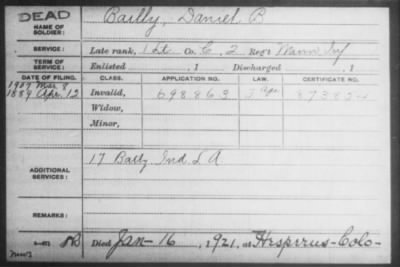 DEAD
NAME OF SOLDIER: Bailly, Daniel B
SERVICE: Late rank, 1 Lt. Co. C, 2 Reg't Minn Inf
TERM OF SERVICE: Enlisted , 1 Discharged , 1
DATE OF FILING. CLASS. APPLICATION NO. LAW. CERTIFICATE NO.
1907 Mar 8
1889 Apr. 12 Invalid, 698863
Widow,
Minor,
ADDITIONAL SERVICES: 17 Batty. Ind. L A
REMARKS:
Died Jan- 16 , 1921, at Hesperus-Colo-